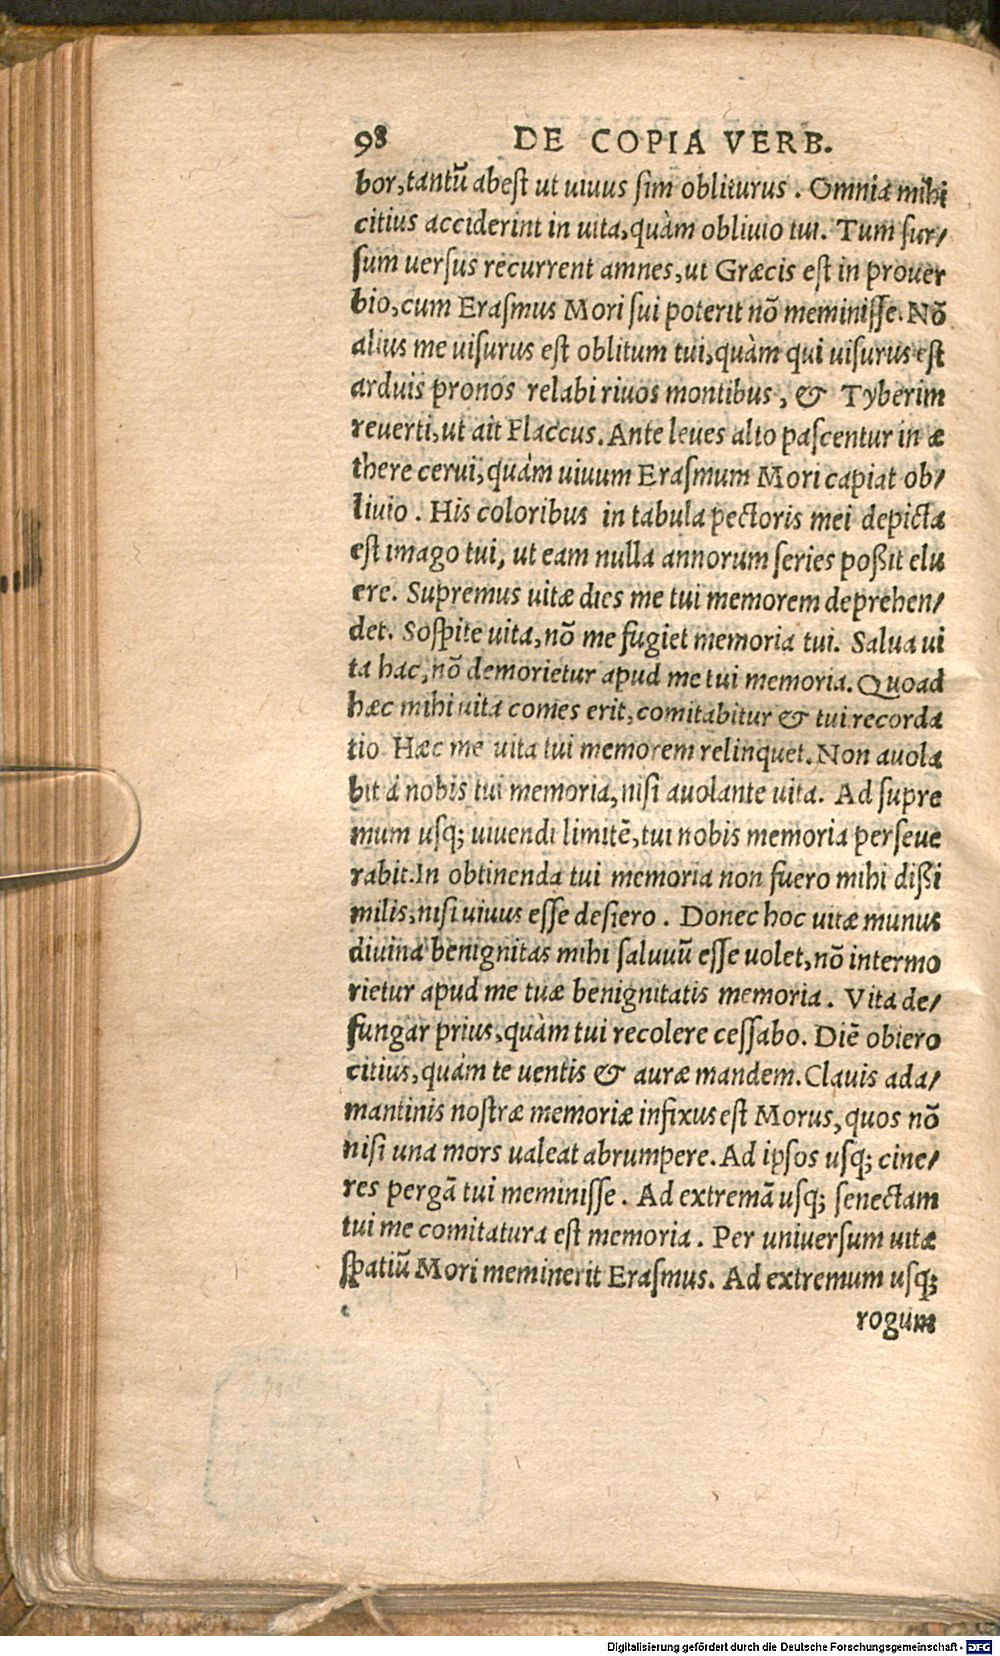 98 DE COPIA VERB.
bor, tantũ abest ut uiuus sim obliturus. Omnia mihi
citius acciderint in uita, quàm obliuio tui. Tum sur/
sum uersus recurrent amnes, ut Græcis est in prouer
bio, cum Erasmus Mori sui poterit nõ meminisse. Nõ
alius me uisurus est oblitum tui, quàm qui uisurus est
arduis pronos relabi riuos montibus, & Tyberim
reuerti, ut ait Flaccus. Ante leues alto pascentur in æ
there cerui, quàm uiuum Erasmum Mori capiat ob/
liuio. His coloribus in tabula pectoris mei depicta
est imago tui, ut eam nulla annorum series poßit elu
ere. Supremus uitæ dies me tui memorem deprehen/
det. Sospite uita, nõ me fugiet memoria tui. Salua ui
ta hac, nõ demorietur apud me tui memoria. Quoad
hæc mihi uita comes erit, comitabitur & tui recorda
tio Hæc me uita tui memorem relinquet. Non auola
bit à nobis tui memoria, nisi auolante uita. Ad supre
mum usq; uiuendi limitẽ, tui nobis memoria perseue
rabit. In obtinenda tui memoria non fuero mihi dißi
milis, nisi uiuus esse desiero. Donec hoc uitæ munus
diuina benignitas mihi saluuũ esse uolet, nõ intermo
rietur apud me tuæ benignitatis memoria. Vita de/
fungar prius, quàm tui recolere cessabo. Diẽ obiero
citius, quàm te uentis & auræ mandem. Clauis ada/
mantinis nostræ memoriæ infixus est Morus, quos nõ
nisi una mors ualeat abrumpere. Ad ipsos usq; cine/
res pergã tui meminisse. Ad extremã usq; senectam
tui me comitatura est memoria. Per uniuersum uitæ
spatiũ Mori meminerit Erasmus. Ad extremum usq;
rogum
Digitalisierung gefördert durch die Deutsche Forschungsgemeinschaft - DFG